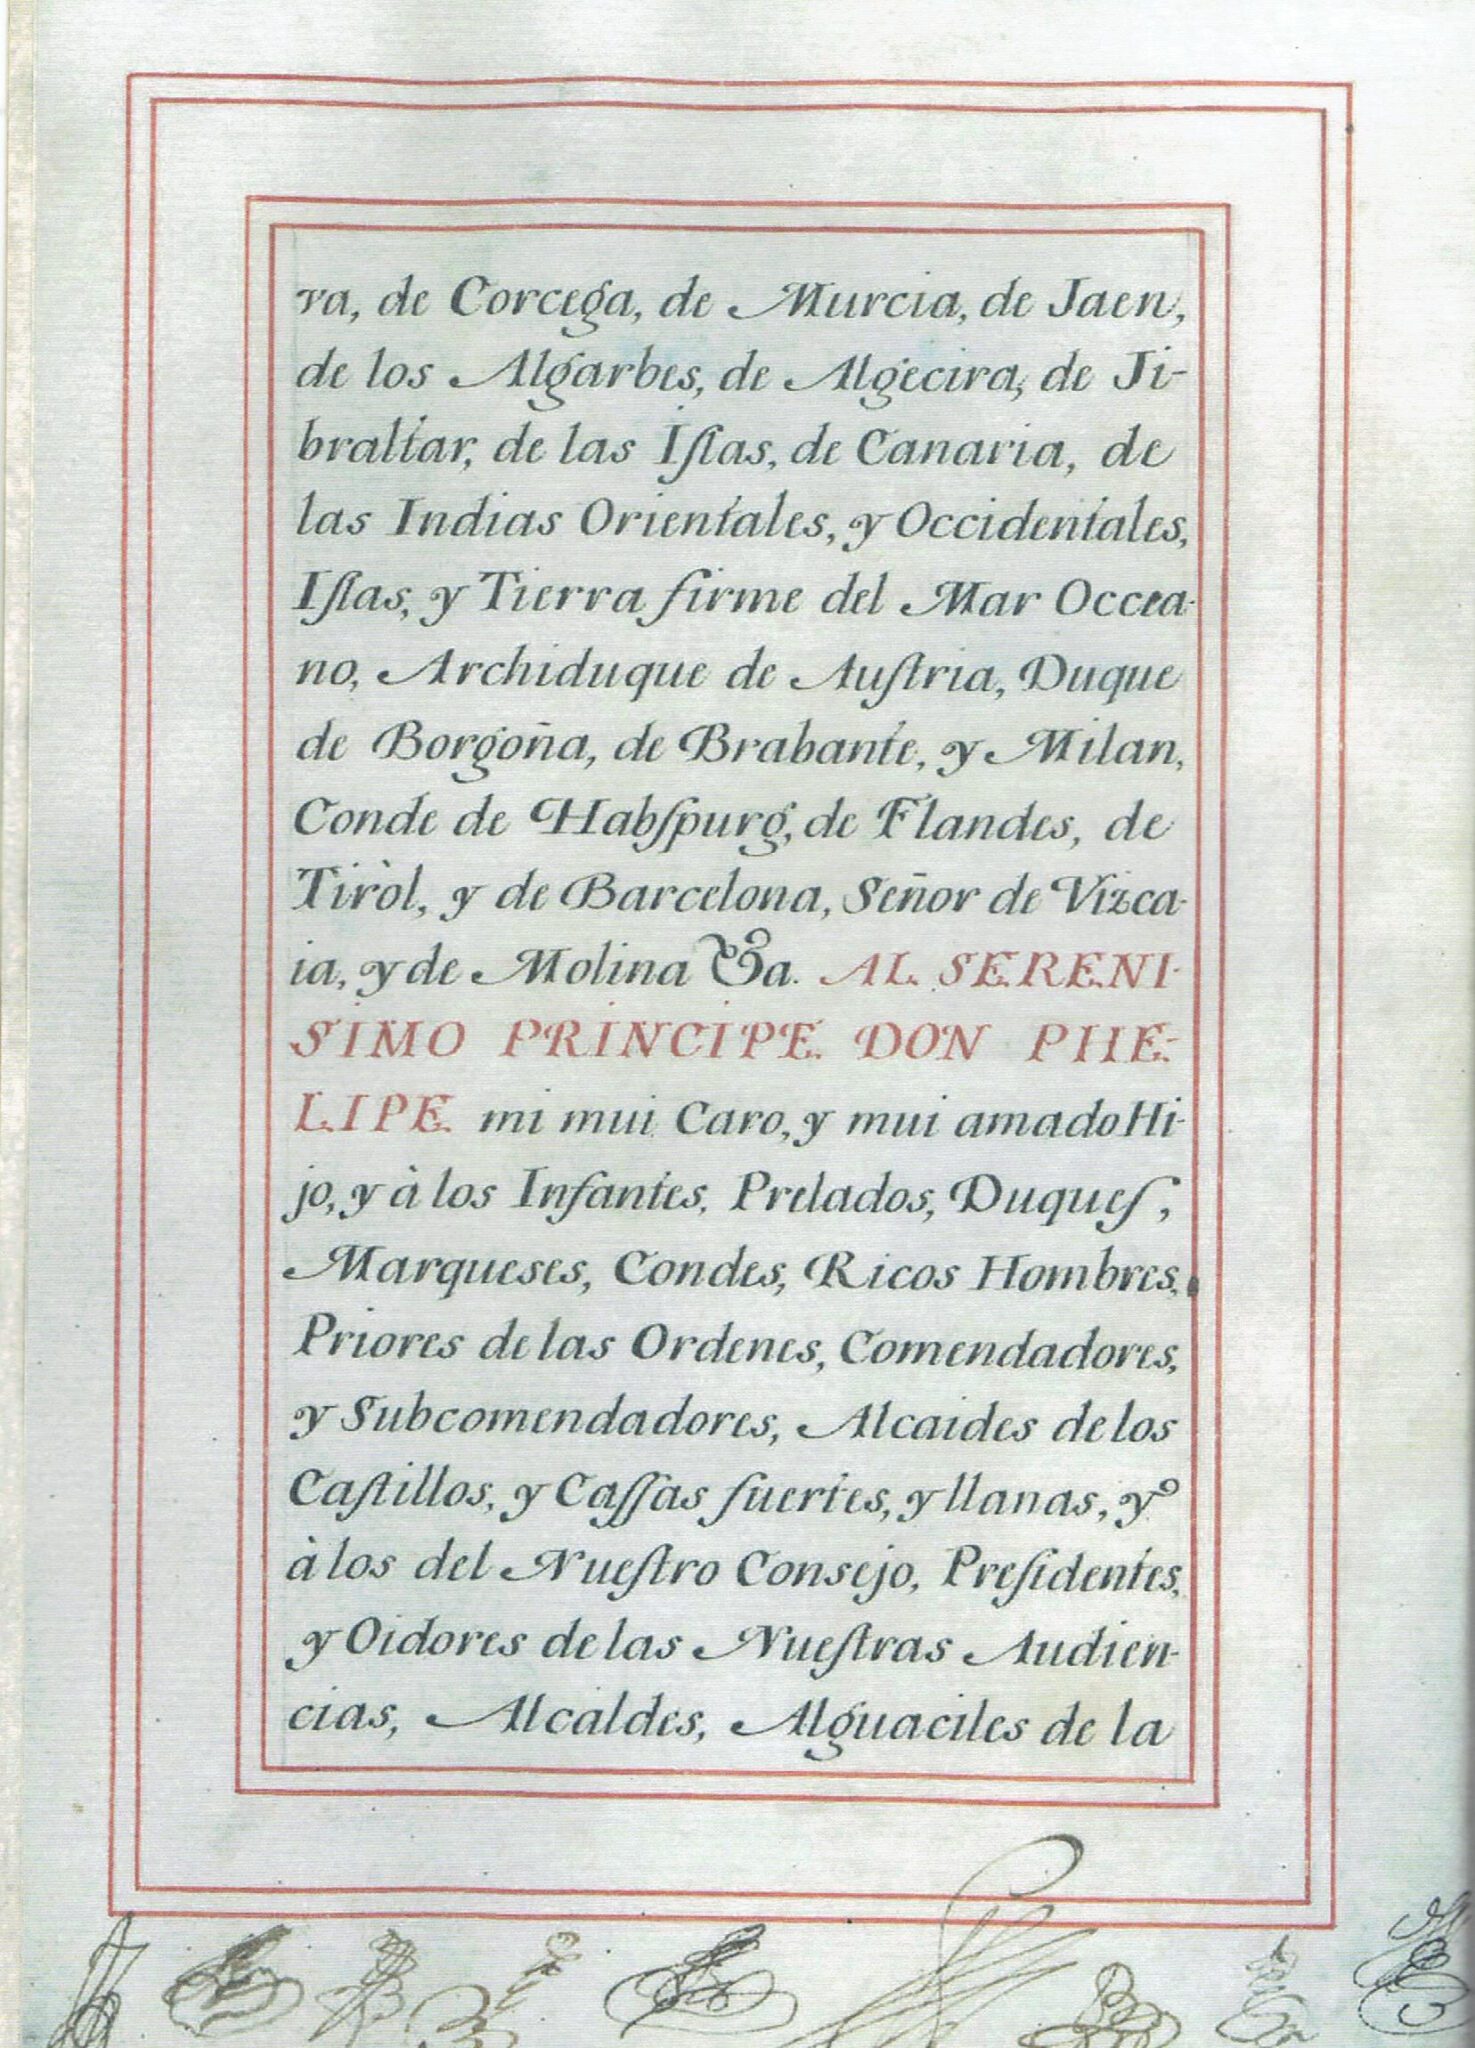 ra, de Corcega, de Murcia, de Jaen,
de los Algarbes, de Algecira, de Ji-
braltar, de las Iſlas, de Canaria, de
las Indias Orientales, y Occidentales,
Iſlas, y Tierra firme del Mar Occea-
no, Archiduque de Auſtria, Duque
de Borgoña, de Brabante, y Milan,
Conde de Habſpurg, de Flandes, de
Tiròl, y de Barcelona, Señor de Vizca-
ia, y de Molina &a. AL SERENI-
SIMO PRINCIPE DON PHE-
LIPE mi mui Caro, y mui amado Hi-
jo, y à los Infantes, Prelados, Duqueſ,
Marqueses, Condes, Ricos Hombres,
Priores de las Ordenes, Comendadores,
y Subcomendadores, Alcaides de los
Caſtillos, y Caſſas fuertes, y llanas, y
à los del Nueſtro Consejo, Preſidentes,
y Oidores de las Nueſtras Audien-
cias, Alcaldes, Alguaciles de la